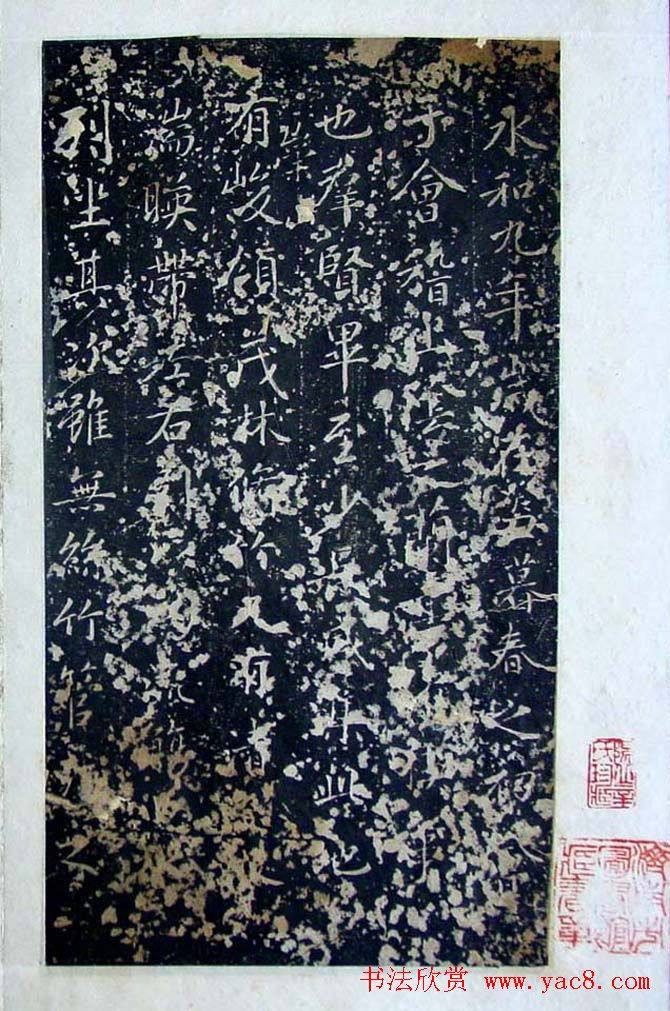 永和九年歲在癸丑暮春之初會
于會稽山陰之蘭亭脩稧
也羣賢畢至少長咸集此地
崇山
有峻領茂林脩竹又有清
湍暎帶左右引以為流觴
列坐其次雖無絲竹管之
书法欣赏 www.yac8.com